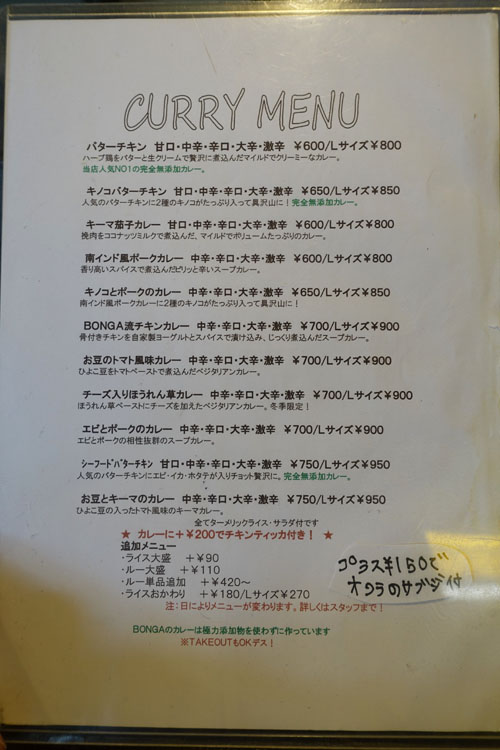 CURRY MENU
バターチキン 甘口・中辛・辛口・大辛・激辛 ￥600/Lサイズ￥800
ハーブ鶏をバターと生クリームで贅沢に煮込んだマイルドでクリーミーなカレー。
当店人気NO1の完全無添加カレー。
キノコバターチキン 甘口・中辛・辛口・大辛・激辛 ￥650/Lサイズ￥850
人気のバターチキンに2種のキノコがたっぷり入って具沢山に！完全無添加カレー。
キーマ茄子カレー 甘口・中辛・辛口・大辛・激辛 ￥600/Lサイズ￥800
挽肉をココナッツミルクで煮込んだ、マイルドでボリュームたっぷりのカレー。
南インド風ポークカレー 中辛・辛口・大辛・激辛 ￥600/Lサイズ￥800
香り高いスパイスで煮込んだピリッと辛いスープカレー。
キノコとポークのカレー 中辛・辛口・大辛・激辛 ￥650/Lサイズ￥850
南インド風ポークカレーに2種のキノコがたっぷり入って具沢山に！
BONGA流チキンカレー 中辛・辛口・大辛・激辛 ￥700/Lサイズ￥900
骨付きチキンを自家製ヨーグルトとスパイスで漬け込み、じっくり煮込んだスープカレー。
お豆のトマト風味カレー 中辛・辛口・大辛・激辛 ￥700/Lサイズ￥900
ひよこ豆をトマトペーストで煮込んだベジタリアンカレー。
チーズ入りほうれん草カレー 中辛・辛口・大辛・激辛 ￥700/Lサイズ￥900
ほうれん草ペーストにチーズを加えたベジタリアンカレー。冬季限定！
エビとポークのカレー 中辛・辛口・大辛・激辛 ￥700/Lサイズ￥900
エビとポークの相性抜群のスープカレー。
シーフードバターチキン 甘口・中辛・辛口・大辛・激辛 ￥750/Lサイズ￥950
人気のバターチキンにエビ・イカ・ホタテが入りチョット贅沢に。完全無添加カレー。
お豆とキーマのカレー 中辛・辛口・大辛・激辛 ￥750/Lサイズ￥950
ひよこ豆の入ったトマト風味のキーマカレー。
全てターメリックライス・サラダ付です
★ カレーに＋￥200でチキンティッカ付き！ ★
追加メニュー
・ライス大盛 ＋￥90
・ルー大盛 ＋￥110
・ルー単品追加 ＋￥420～
・ライスおかわり ＋￥180/Lサイズ￥270
注：日によりメニューが変わります。詳しくはスタッフまで！
プラス¥150で
オクラのサブジ付
BONGAのカレーは極力添加物を使わずに作っています
※TAKEOUTもOKデス！